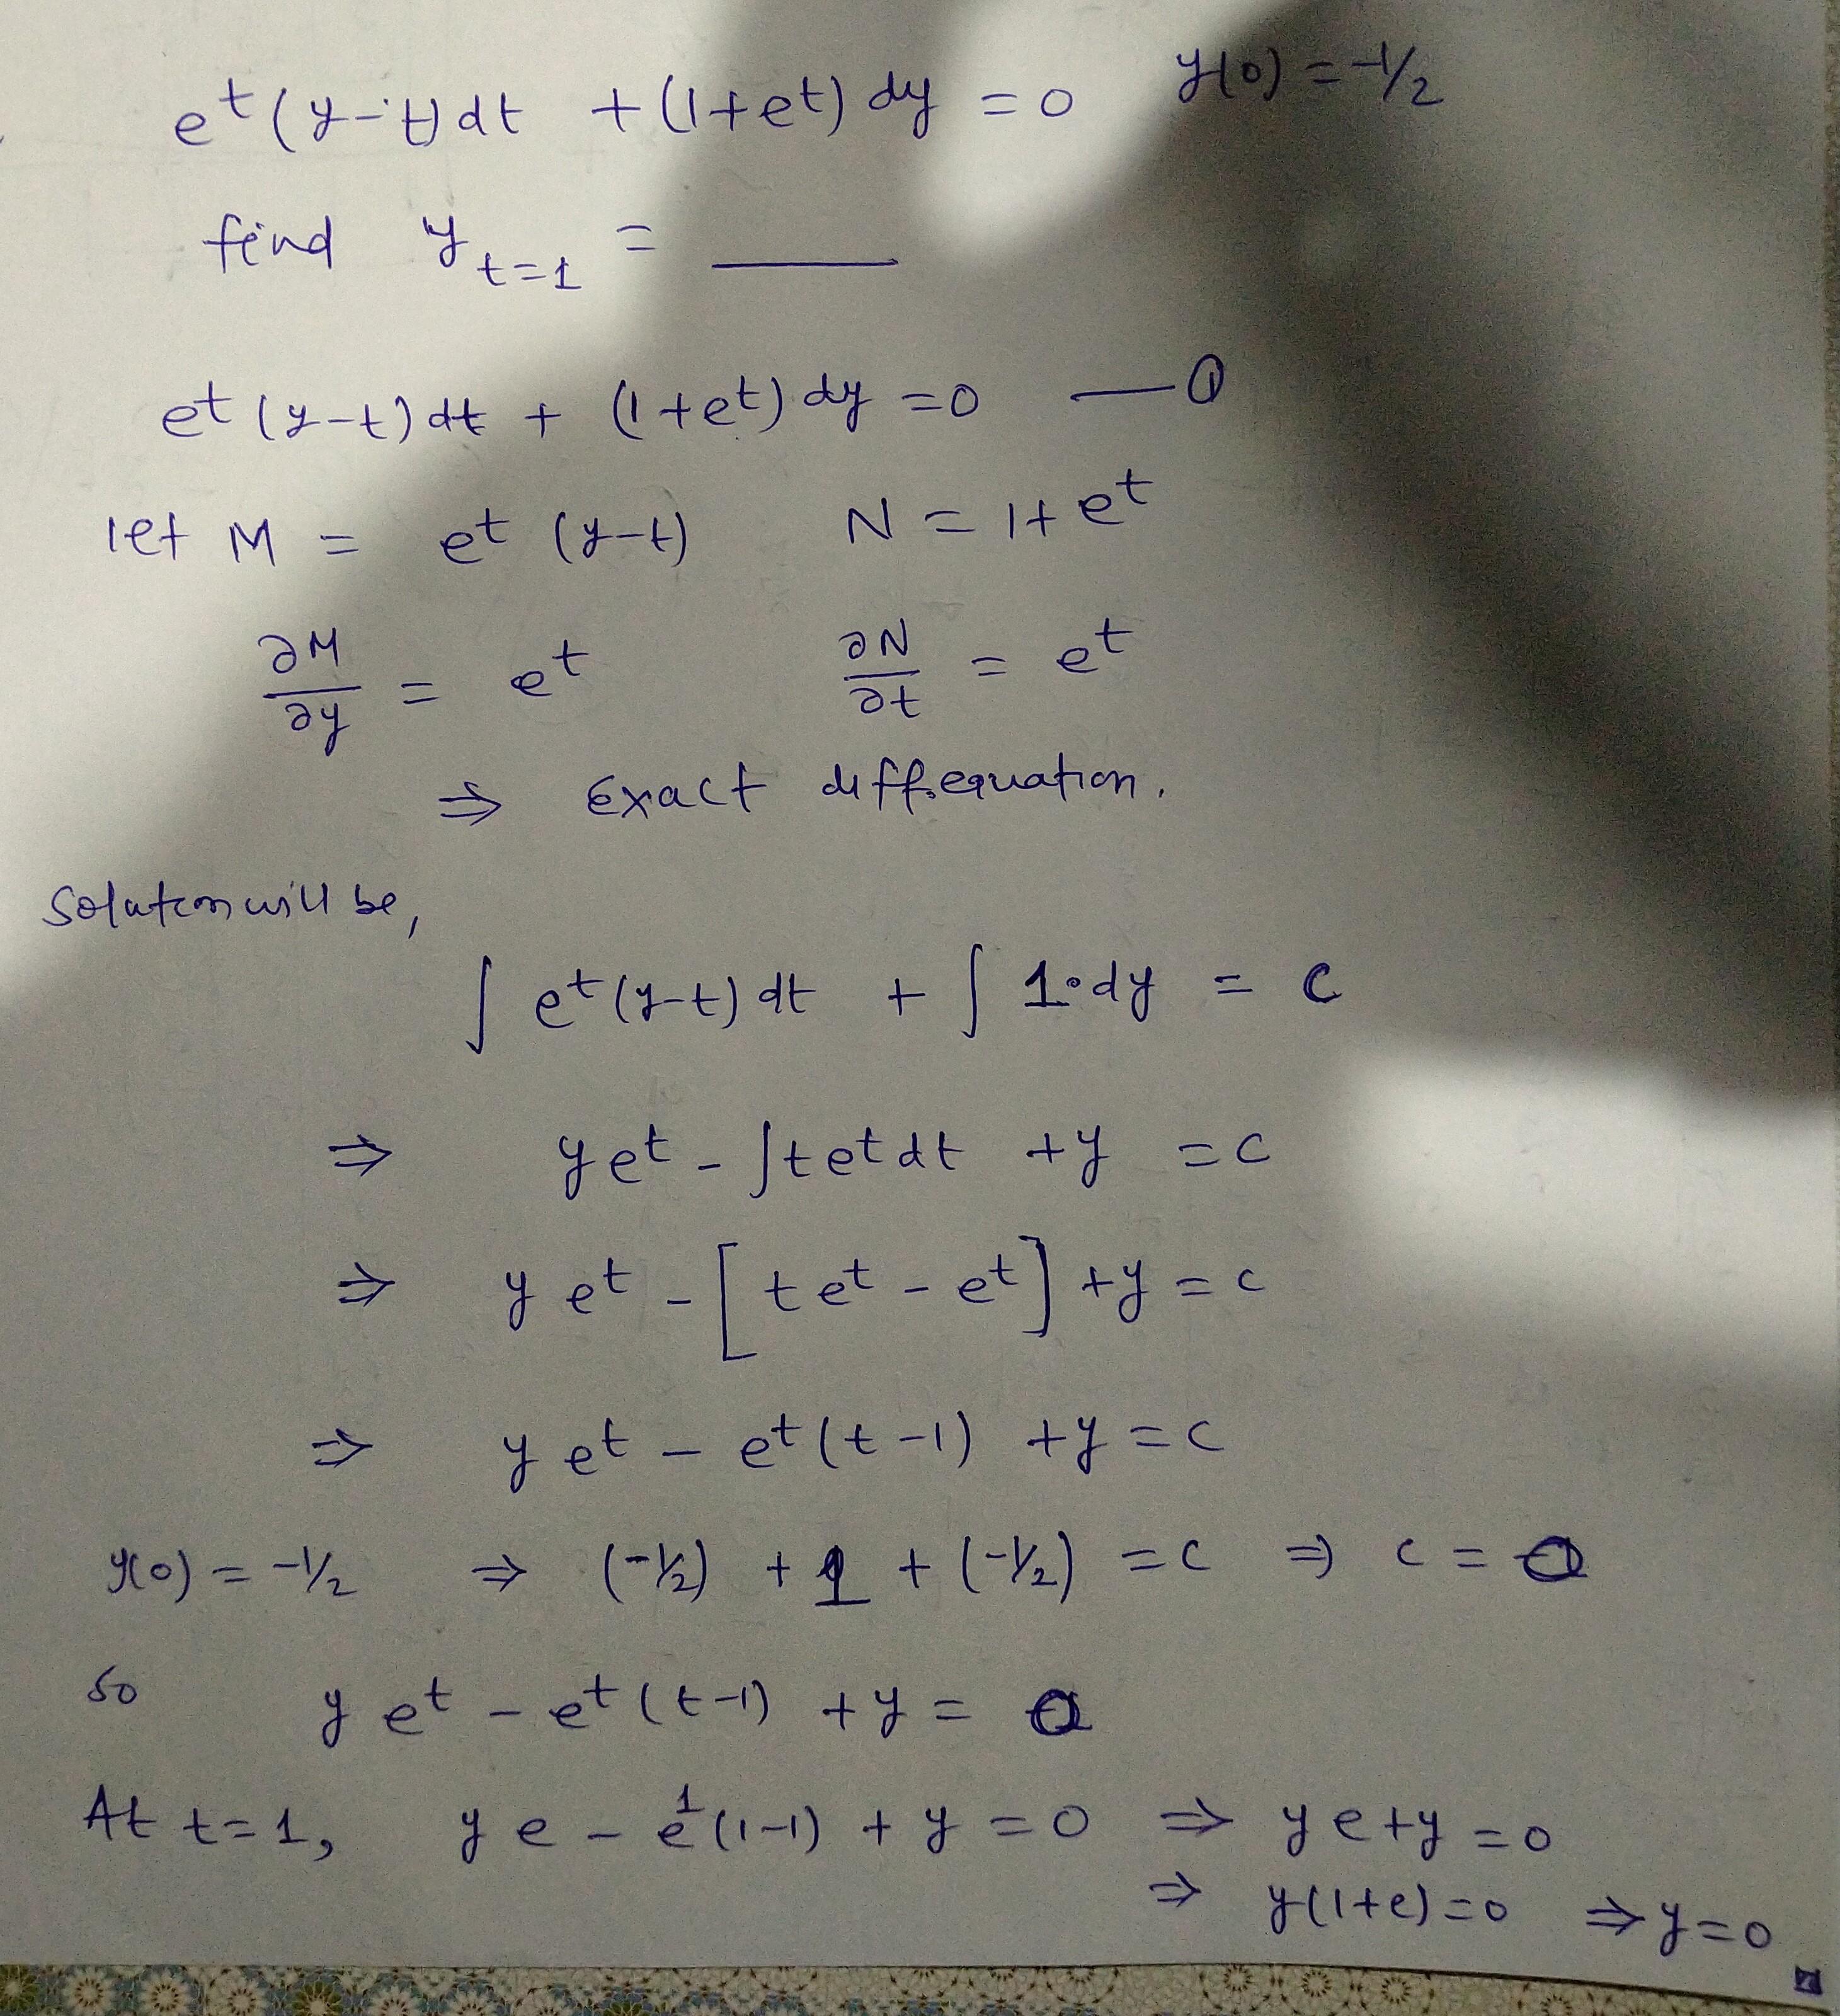 e^t (y-t) dt + (1+e^t) dy = 0    y(0) = -1/2
find y_{t=1} = ____
e^t (y-t) dt + (1+e^t) dy = 0 — ①
let M = e^t (y-t)    N = 1+e^t
∂M/∂y = e^t    ∂N/∂t = e^t
⇒ Exact diff. equation.
Solution will be,
∫ e^t (y-t) dt + ∫ 1·dy = c
⇒ y e^t - ∫ t e^t dt + y = c
⇒ y e^t - [t e^t - e^t] + y = c
⇒ y e^t - e^t (t-1) + y = c
y(0) = -1/2 ⇒ (-1/2) + 1 + (-1/2) = c ⇒ c = 0
so y e^t - e^t (t-1) + y = 0
At t=1, y e - e^1 (1-1) + y = 0 ⇒ y e + y = 0
⇒ y(1+e) = 0 ⇒ y = 0